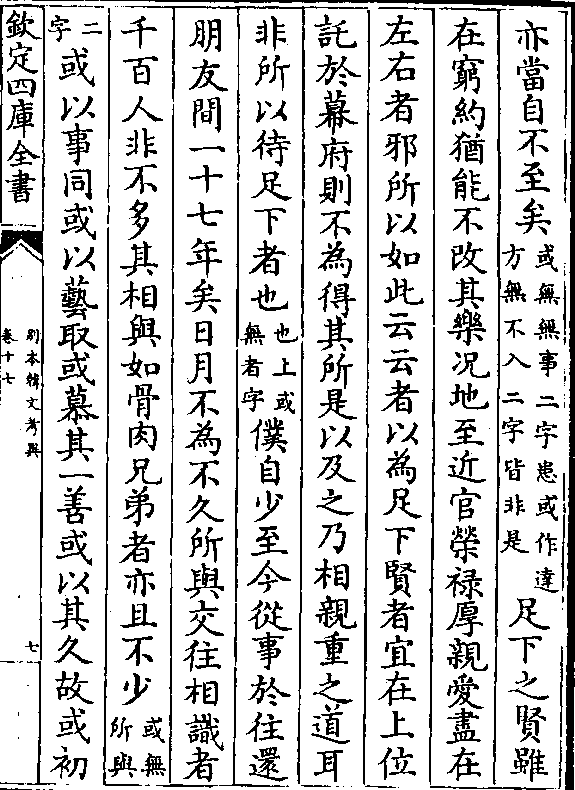 亦當自不至矣或無無事二字患或作達方無不入二字皆非是足下之賢雖
在窮約猶能不改其樂况地至近官榮禄厚親愛盡在
左右者邪所以如此云云者以為足下賢者宜在上位
託於幕府則不為得其所是以及之乃相親重之道耳
非所以待足下者也也上或無者字僕自少至今從事於往還
朋友間一十七年矣日月不為不久所與交往相識者
千百人非不多其相與如骨肉兄弟者亦且不少或無所與
二字或以事同或以藝取或慕其一善或以其久故或初
欽定四庫全書
別本韓文考異
卷十七
七